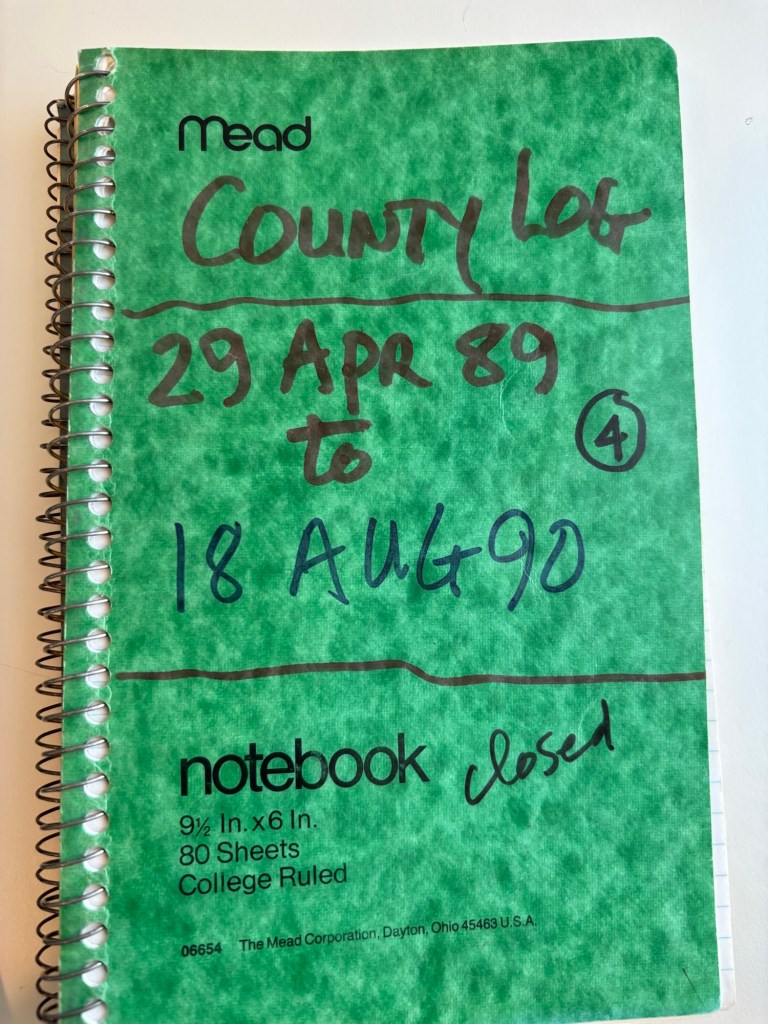 Mead
COUNTY LOG
29 APR 89
to
4
18 AUG 90
notebook closed
9½ In. x 6 In.
80 Sheets
College Ruled
06654 The Mead Corporation, Dayton, Ohio 45463 U.S.A.